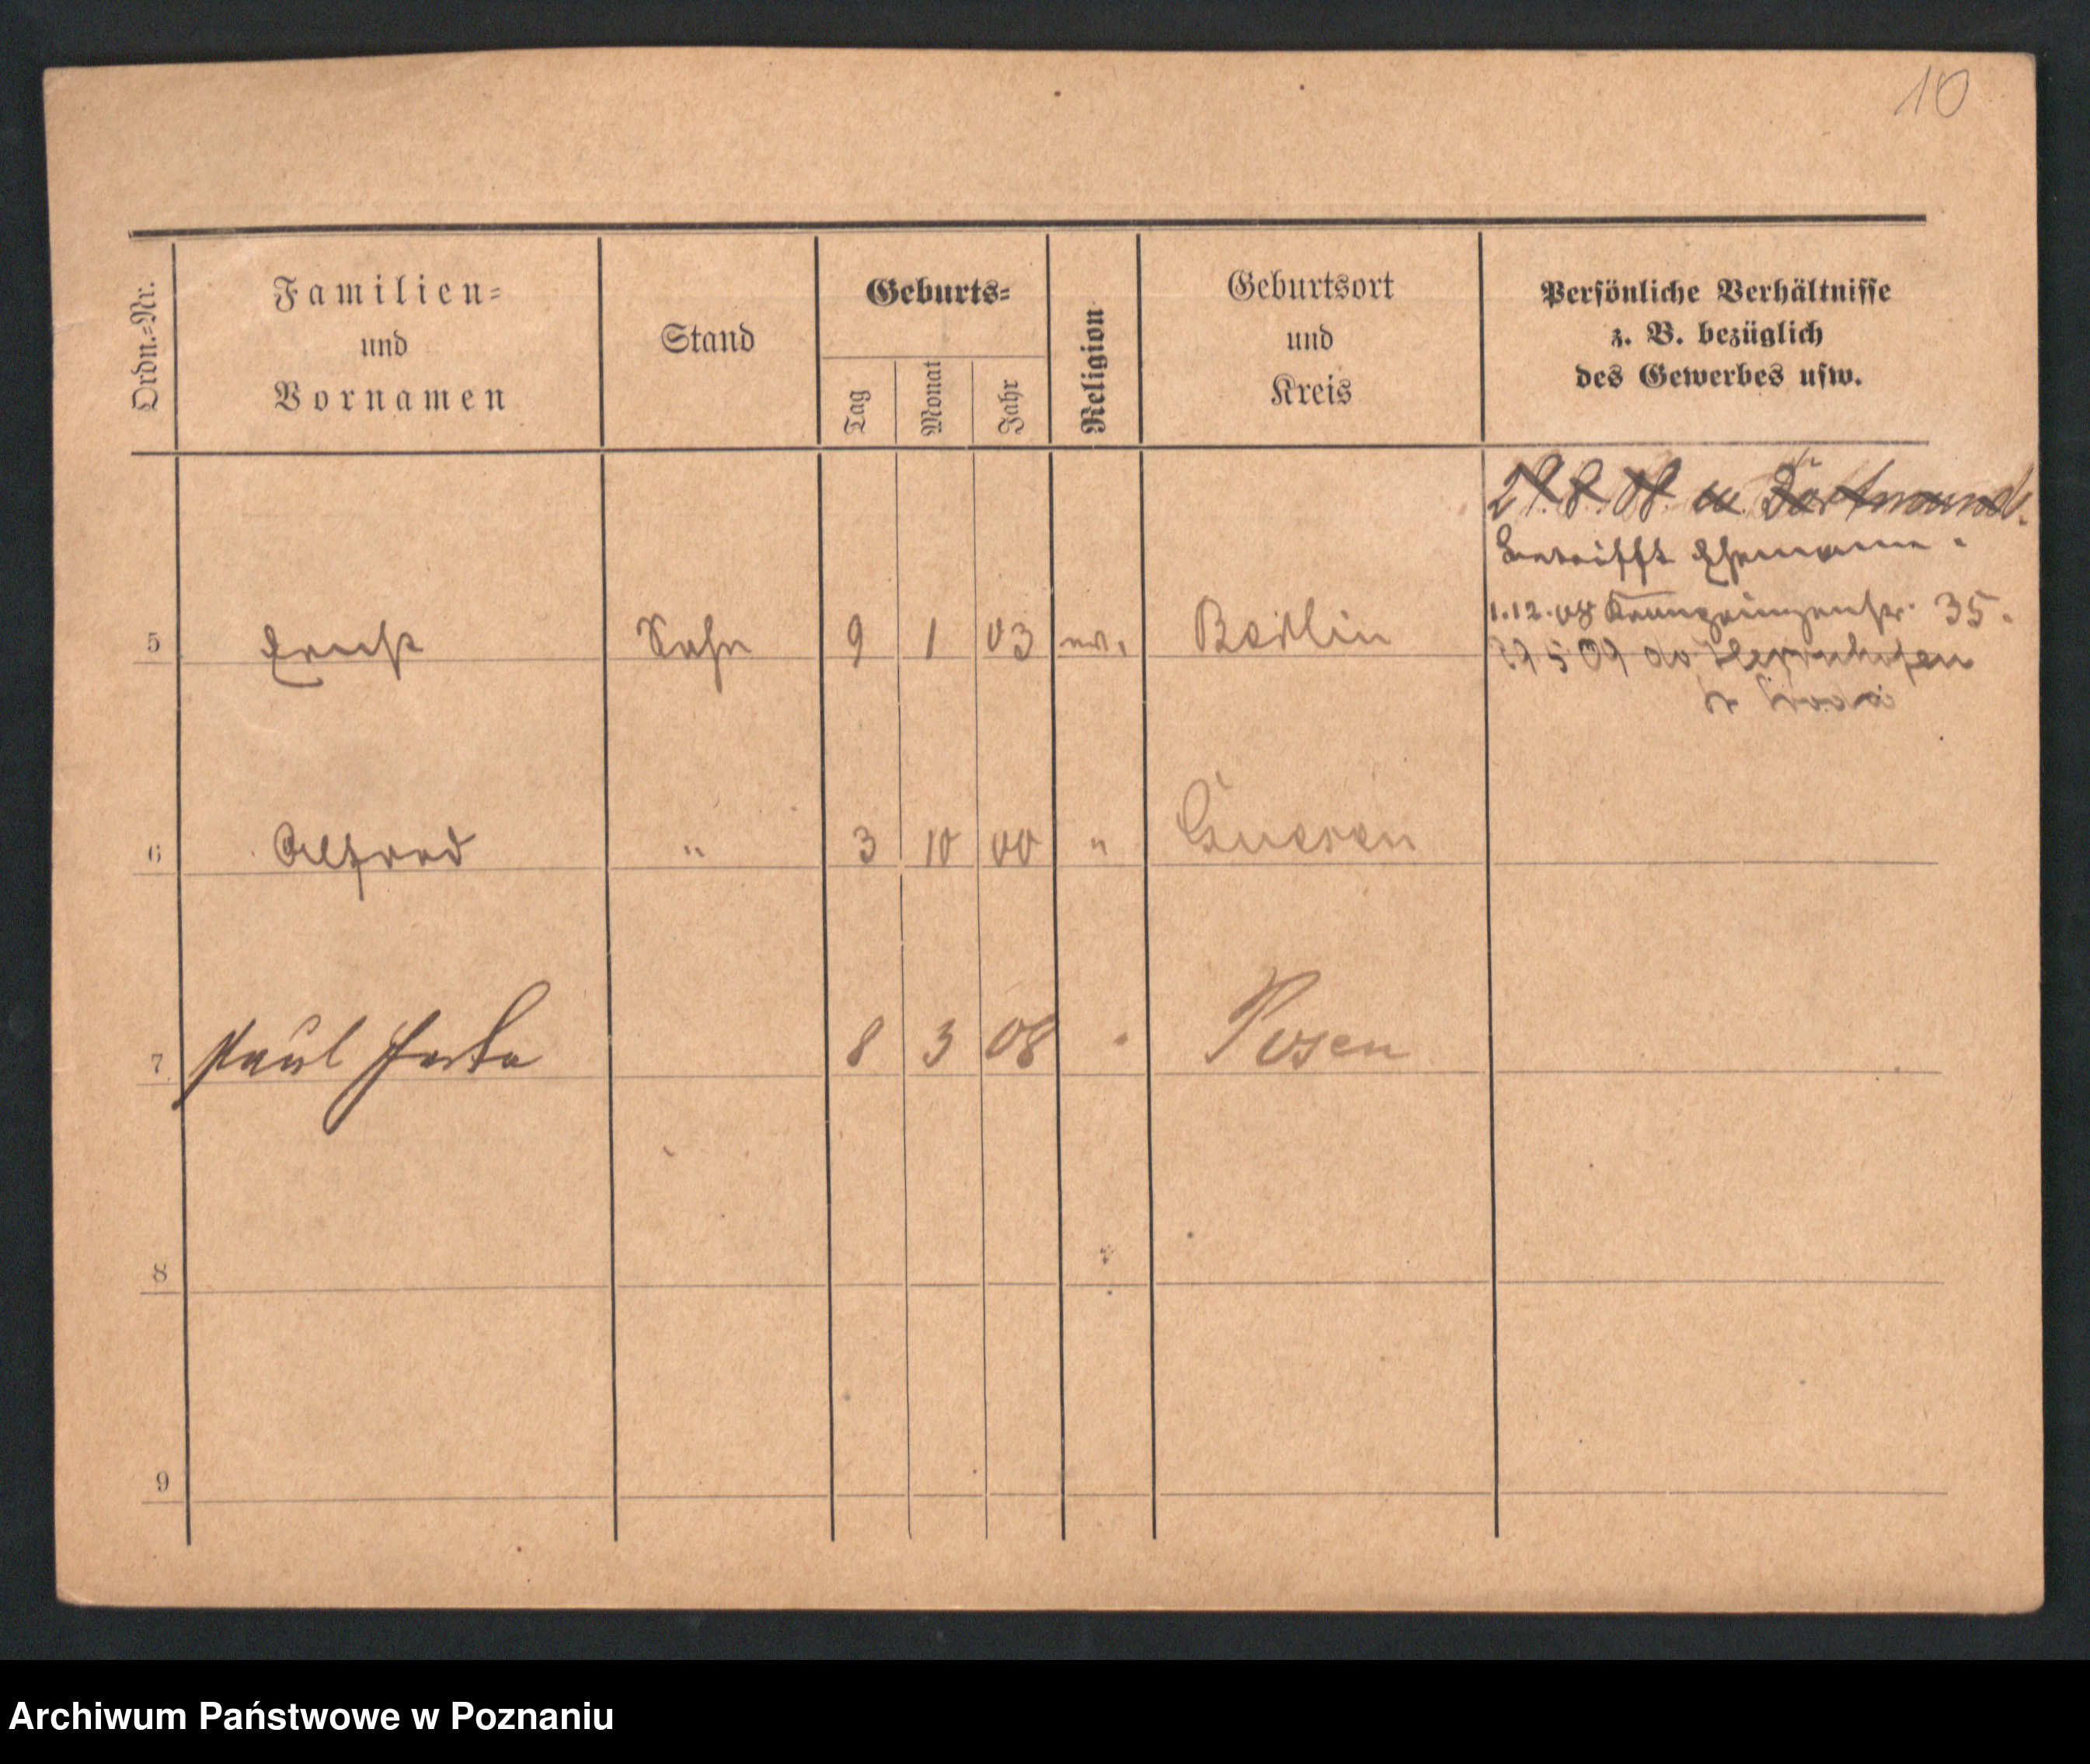 10
Ordn.-Nr.
Familien-
und
Vornamen
Stand
Geburts-
Tag
Monat
Jahr
Religion
Geburtsort
und
Kreis
Persönliche Verhältnisse
z. B. bezüglich
des Gewerbes usw.
29.8.08. n. Dortmund.
betrifft Ehemann.
1.12.08 Kronprinzenstr. 35.
5 Ernst Sohn 9 1 03 ev. Berlin
29 5 09
6 Alfred " 3 10 00 " Gnesen
7 Paul 8 3 08 " Posen
8
9
Archiwum Państwowe w Poznaniu